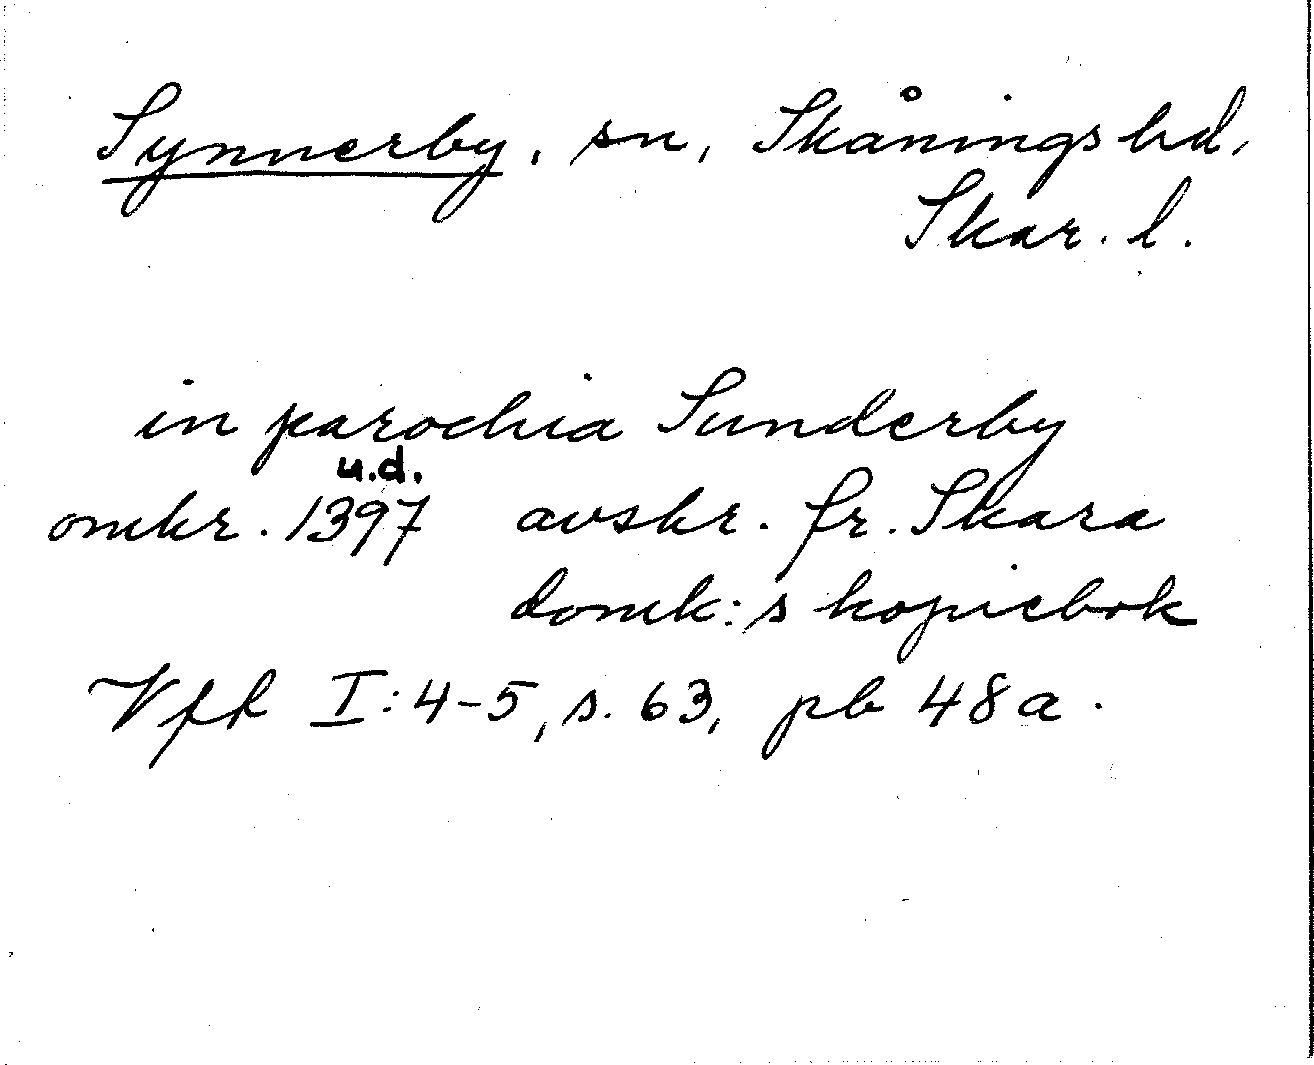 Synnerby, sn, Skånings hd,
Skar. l.
in parochia Sunderby
u.d.
omkr. 1397 avskr. fr. Skara
domk:s kopiebok
Vffr I:4-5, s. 63, pb 48a.